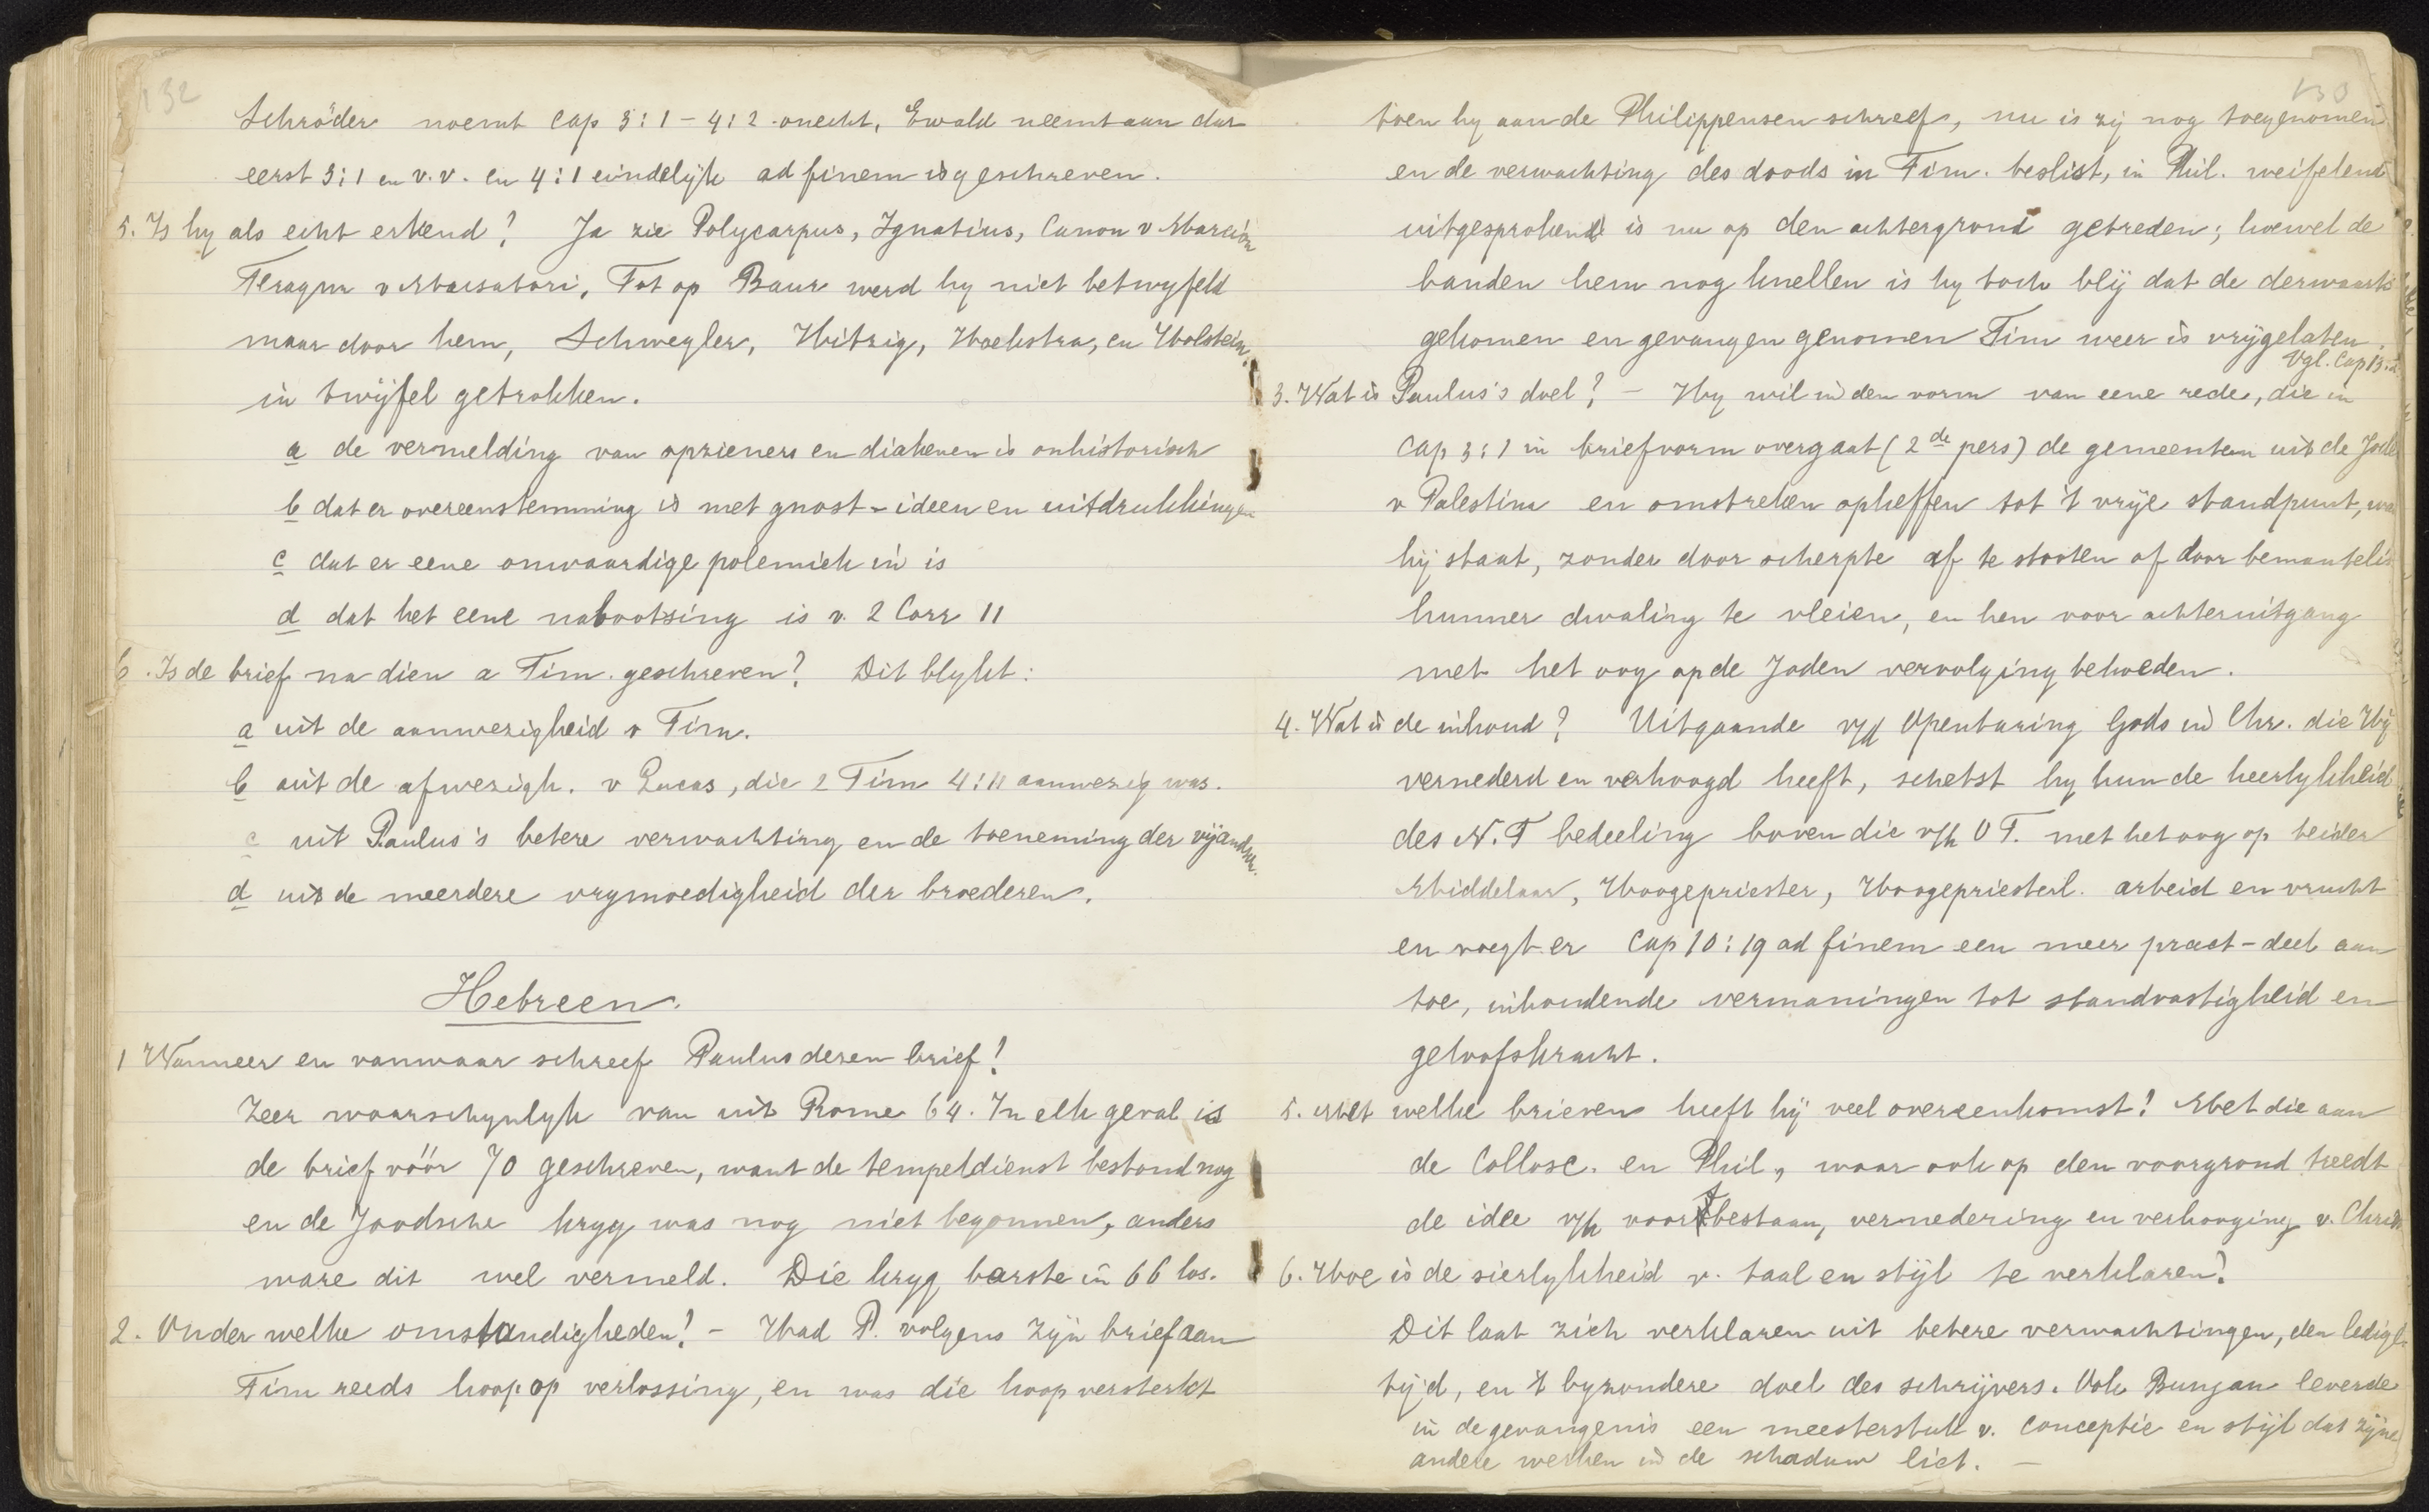 132
Schröder noemt Cap 3:1 – 4:2 onecht, Ewald neemt aan dat
eerst 3:1 en v.v. en 4:1 eindelijk ad finem is geschreven.
5. Is hy als echt erkend? Ja zie Polycarpus, Ignatius, Canon v Marcion
Fragm v Muratori, Tot op Baur werd hy niet betwyfeld
maar door hem, Schwegler, Hitzig, Hoekstra, en Holstein
in twijfel getrokken.
a de vermelding van opzieners en diakenen is onhistorisch
b dat er overeenstemming is met gnost-ideen en uitdrukkingen
c dat er eene onwaardige polemiek in is
d dat het eene nabootsing is v. 2 Corr 11
6. Is de brief na dien a Tim. geschreven? Dit blykt:
a uit de aanwezigheid v Tim.
b uit de afwezigh. v Lucas, die 2 Tim 4:11 aanwezig was.
c uit Paulus's betere verwachting en de toeneming der vijandsch.
d uit de meerdere vrymoedigheid der broederen.
Hebreen.
1 Wanneer en vanwaar schreef Paulus dezen brief?
Zeer waarschynlyk van uit Rome 64. In elk geval is
de brief vóór 70 geschreven, want de tempeldienst bestond nog
en de Joodsche kryg was nog niet begonnen, anders
ware dit wel vermeld. Die kryg barste in 66 los.
2. Onder welke omstandigheden? – Had P. volgens zijn brief aan
Tim reeds hoop op verlossing, en was die hoop versterkt
133
toen hy aan de Philippensen schreef, nu is zij nog toegenomen
en de verwachting des doods in Tim. beslist, in Phil. weifelend
uitgesproken is nu op den achtergrond getreden; hoewel de
banden hem nog knellen is hy toch blij dat de derwaarts
gekomen en gevangen genomen Tim weer is vrijgelaten.
Vgl. Cap 13:
3. Wat is Paulus's doel? – Hy wil in den vorm van eene rede, die in
Cap 3:1 in briefvorm overgaat (2de pers) de gemeenten uit de Joden
v Palestina en omstreken opheffen tot 't vrije standpunt,
hij staat, zonder door scherpte af te stooten of door bemanteling
hunner dwaling te vleien, en hen voor achteruitgang
met het oog op de Joden vervolging behoeden.
4. Wat is de inhoud? Uitgaande v/d Openbaring Gods in Chr. die Hij
vernederd en verhoogd heeft, schetst hy hun de heerlykheid
des N.T bedeeling boven die v/h O T. met het oog op beider
Middelaar, Hoogepriester, Hoogepriesterl. arbeid en vrucht
en voegt er Cap 10:19 ad finem een meer pract-deel aan
toe, inhoudende vermaningen tot standvastigheid en
geloofskracht.
5. Met welke brieven heeft hij veel overeenkomst? Met die aan
de Colloss. en Phil, waar ook op den voorgrond treedt
de idee v/h voortbestaan, vernedering en verhooging v. Christ
6. Hoe is de sierlykheid v. taal en stijl te verklaren?
Dit laat zich verklaren uit betere verwachtingen, den ledigen
tijd, en 't byzondere doel des schrijvers. Ook Bunjan leverde
in de gevangenis een meesterstuk v. conceptie en stijl dat zijne
andere werken in de schaduw liet. –